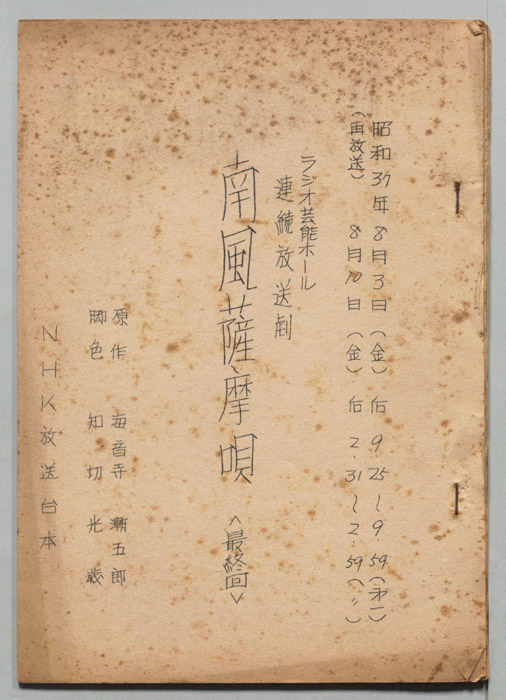 昭和37年8月3日（金）后9.25〜9.59（第一）
（再放送）8月10日（金）后2.31〜2.59（〃）
ラジオ芸能ホール
連続放送劇
南風薩摩唄
＜最終回＞
原作 海音寺 潮五郎
脚色 知切 光歳
NHK放送台本